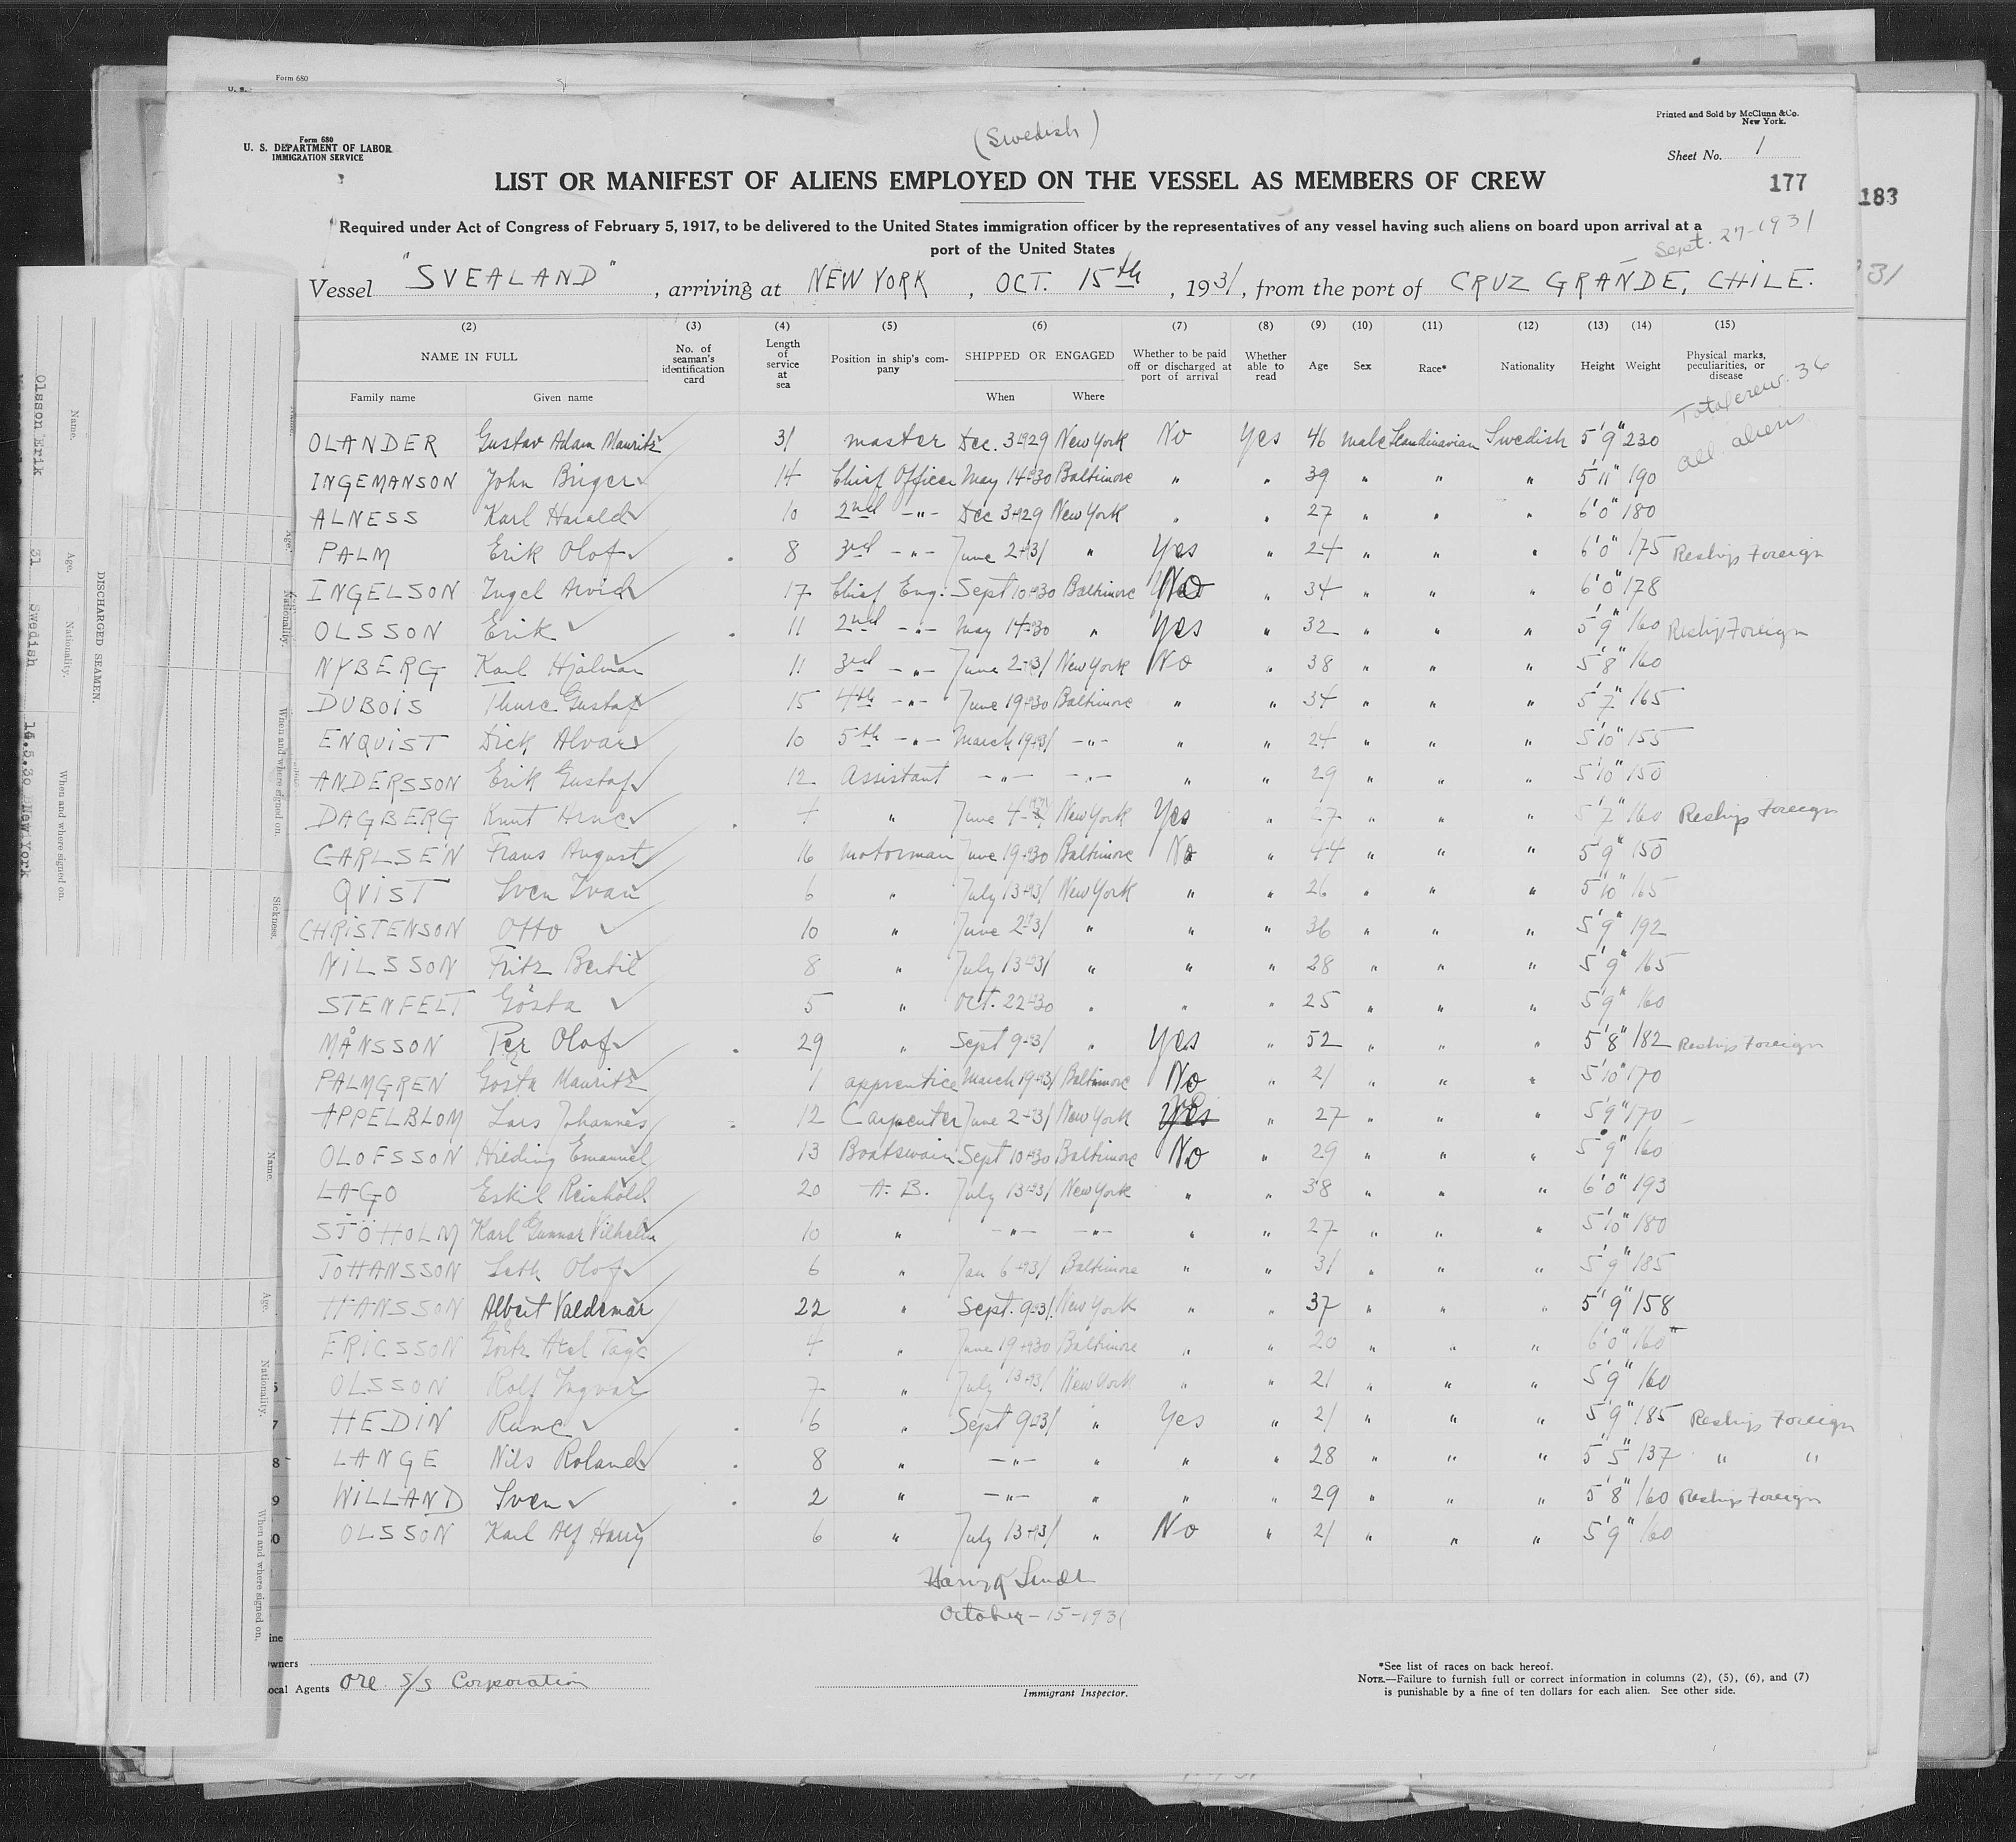 Form 680
U. S.
(Swedish)
Printed and Sold by McClunn & Co.
New York.
Form 680
U. S. DEPARTMENT OF LABOR
IMMIGRATION SERVICE
Sheet No. 1
LIST OR MANIFEST OF ALIENS EMPLOYED ON THE VESSEL AS MEMBERS OF CREW
177
183
Required under Act of Congress of February 5, 1917, to be delivered to the United States immigration officer by the representatives of any vessel having such aliens on board upon arrival at a
port of the United States
Sept. 27-1931
31
Vessel "SVEALAND", arriving at NEW YORK, OCT. 15th, 1931, from the port of CRUZ GRANDE, CHILE.
(2) (3) (4) (5) (6) (7) (8) (9) (10) (11) (12) (13) (14) (15)
NAME IN FULL No. of seaman's identification card Length of service at sea Position in ship's company SHIPPED OR ENGAGED Whether to be paid off or discharged at port of arrival Whether able to read Age Sex Race* Nationality Height Weight Physical marks, peculiarities, or disease
Family name Given name When Where
Total crew 36
all aliens
OLANDER Gustav Adam Mauritz 31 master Dec. 3-1929 New York No Yes 46 male Scandinavian Swedish 5'9" 230
INGEMANSON John Briger 14 Chief Officer May 14-1930 Baltimore " " 39 " " " 5'11" 190
ALNESS Karl Harald 10 2nd -"- Dec 3-1929 New York " " 27 " " " 6'0" 180
PALM Erik Olof 8 3rd -"- June 2-31 " Yes " 24 " " " 6'0" 175 Reship Foreign
INGELSON Ingel Arvid 17 Chief Eng. Sept 10-1930 Baltimore No " 34 " " " 6'0" 178
OLSSON Erik 11 2nd -"- May 14-30 " Yes " 32 " " " 5'9" 160 Reship Foreign
NYBERG Karl Hjalmar 11 3rd -"- June 2-31 New York No " 38 " " " 5'8" 160
DUBOIS Thure Gustaf 15 4th -"- June 19-30 Baltimore " " 34 " " " 5'7" 165
ENQUIST Dick Alvar 10 5th -"- March 19-31 -"- " " 24 " " " 5'10" 155
ANDERSSON Erik Gustaf 12 Assistant -"- -"- " " 29 " " " 5'10" 150
DAGBERG Knut Arne 4 " June 4-1931 New York Yes " 27 " " " 5'7" 160 Reship Foreign
CARLSEN Frans August 16 motorman June 19-30 Baltimore No " 44 " " " 5'9" 150
QVIST Sven Ivan 6 " July 13-31 New York " " 26 " " " 5'10" 165
CHRISTENSON Otto 10 " June 2-31 " " " 36 " " " 5'9" 192
NILSSON Fritz Bertil 8 " July 13-31 " " " 28 " " " 5'9" 165
STENFELT Gösta 5 " Oct. 22-30 " " " 25 " " " 5'9" 160
MÅNSSON Per Olof 29 " Sept 9-31 " Yes " 52 " " " 5'8" 182 Reship Foreign
PALMGREN Gösta Mauritz 1 apprentice March 19-31 Baltimore No " 21 " " " 5'10" 170
APPELBLOM Lars Johannes 12 Carpenter June 2-31 New York Yes " 27 " " " 5'9" 170
OLOFSSON Hilding Emanuel 13 Boatswain Sept 10-30 Baltimore No " 29 " " " 5'9" 160
LAGO Eskil Reinhold 20 A. B. July 13-31 New York " " 38 " " " 6'0" 193
STÖHOLM Karl Gunnar Vilhelm 10 " -"- -"- " " 27 " " " 5'10" 180
JOHANSSON Seth Olof 6 " Jan 6-1931 Baltimore " " 31 " " " 5'9" 185
HANSSON Albert Valdemar 22 " Sept. 9-31 New York " " 37 " " " 5'9" 158
ERICSSON Axel Tage 4 " June 19-1930 Baltimore " " 20 " " " 6'0" 160
OLSSON Rolf Ingvar 7 " July 13-31 New York " " 21 " " " 5'9" 160
7 HEDIN Rune 6 " Sept 9-31 " Yes " 21 " " " 5'9" 185 Reship Foreign
8 LANGE Nils Roland 8 " -"- " " " 28 " " " 5'5" 137 " "
9 WILLAND Sven 2 " -"- " " " 29 " " " 5'8" 160 Reship Foreign
0 OLSSON Karl Alf Harry 6 " July 13-31 " No " 21 " " " 5'9" 160
October-15-1931
ine
wners
ocal Agents Ore S/S Corporation
Immigrant Inspector.
*See list of races on back hereof.
NOTE.—Failure to furnish full or correct information in columns (2), (5), (6), and (7)
is punishable by a fine of ten dollars for each alien. See other side.
DISCHARGED SEAMEN.
Name. Age. Nationality. When and where signed on.
Olsson Erik 31 Swedish 14.5.30 New York
Name. Age. Nationality. When and where signed on. Sickness.
Name. Age. Nationality. When and where signed on.